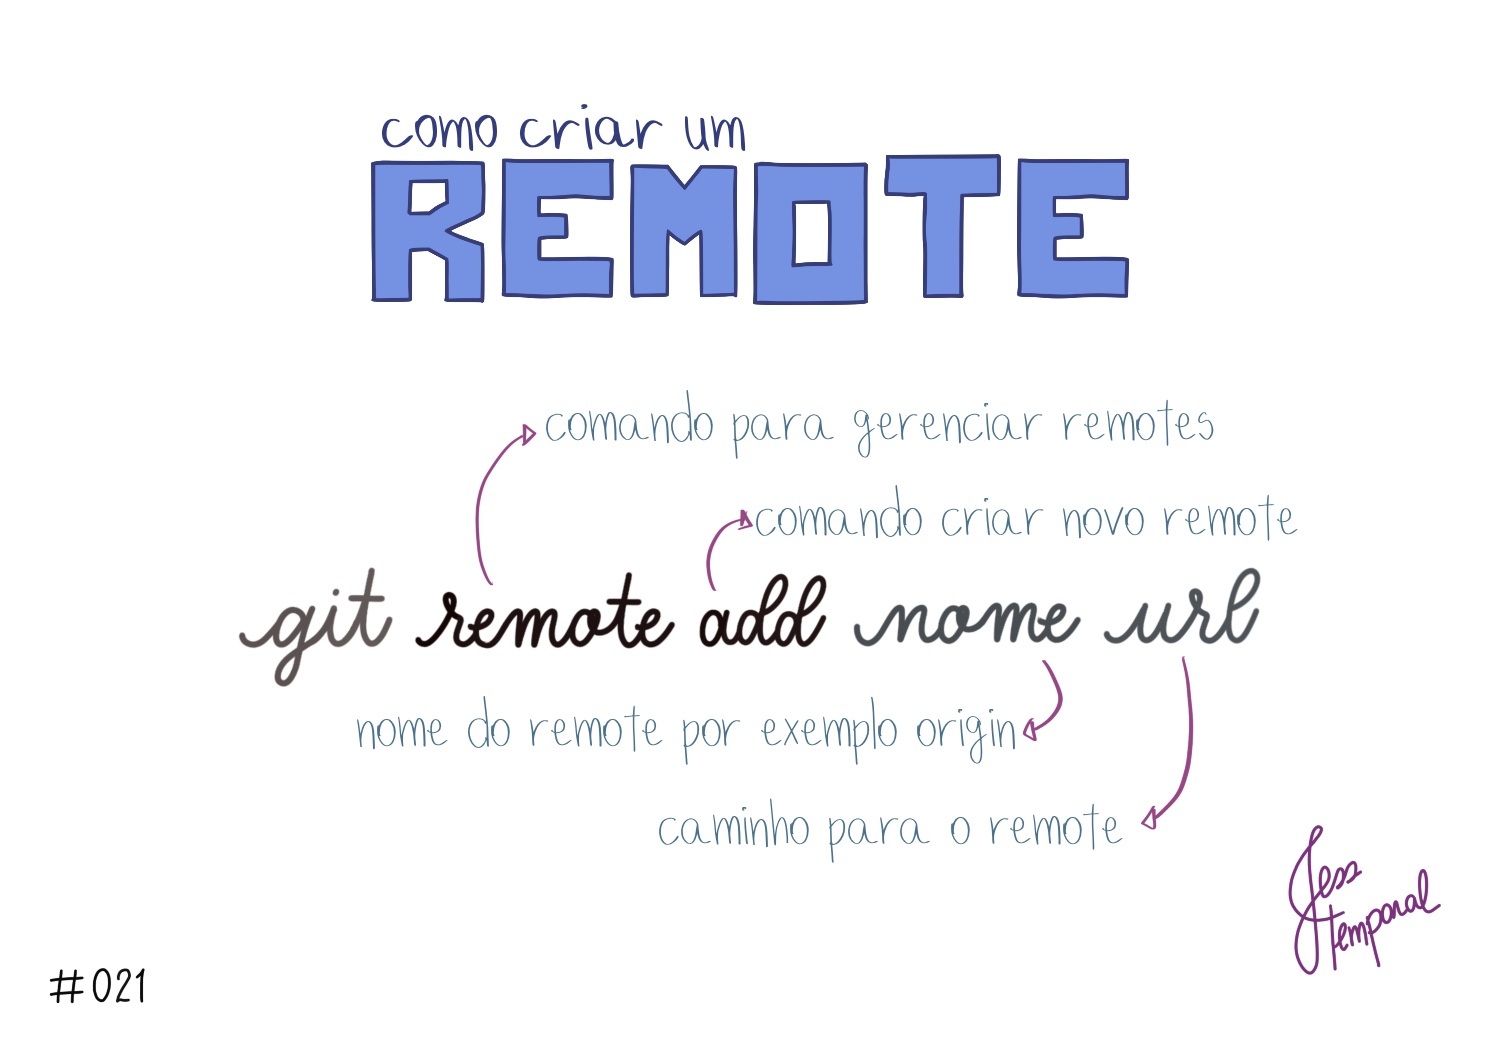 como criar um
REMOTE
comando para gerenciar remotes
comando criar novo remote
git remote add nome url
nome do remote por exemplo origin
caminho para o remote
Jess
temporal
#021